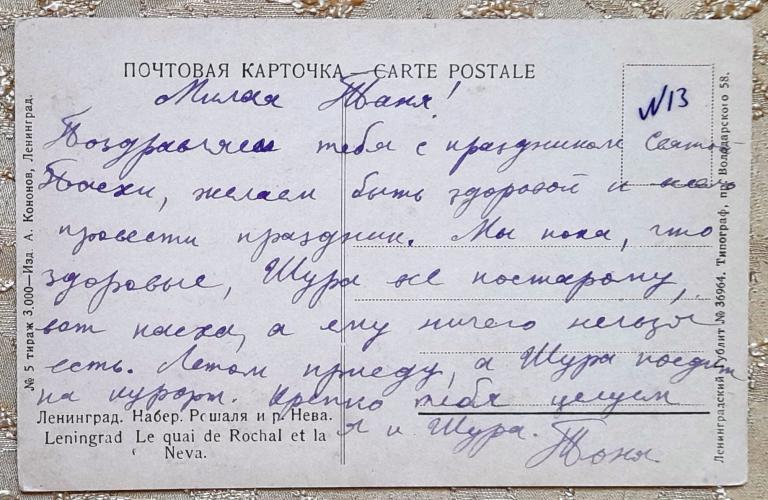 ПОЧТОВАЯ КАРТОЧКА — CARTE POSTALE
№13
Милая Таня!
Поздравляем тебя с праздником Святой
Пасхи, желаем быть здоровой и
провести праздник. Мы пока, что
здоровые, Шура не постарому,
вот пасха, а ему ничего нельзя
есть. Летом приеду, а Шура поедит
на курорт. Крепко тебя целуем
я и Шура.
Тоня.
Ленинград. Набер. Рошаля и р. Нева.
Leningrad Le quai de Rochal et la
Neva.
№ 5 тираж 3.000—Изд. А. Кононов, Ленинград.
Ленинградский Гублит № 36964. Типограф, пр. Володарского 58.